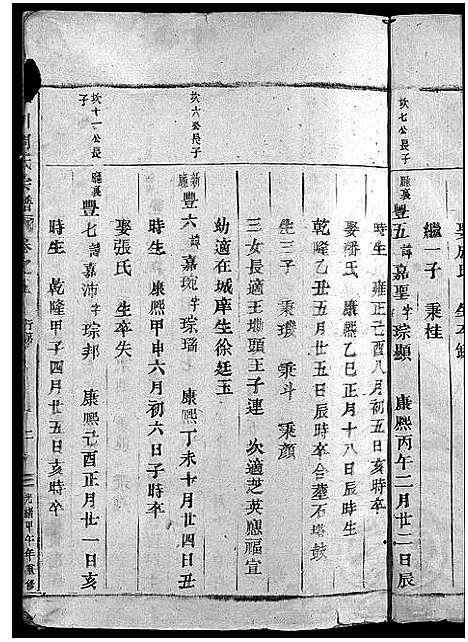 娶
氏
生卒
繼一子 秉桂
坎七公長子
廳裏
豐五 諱嘉聖字琮顯 康熙丙午二月廿二日辰
時生 雍正己酉八月初五日亥時卒
娶潘氏 康熙乙巳正月十八日辰時生
乾隆乙丑五月廿五日辰時卒合墓石塔鼓
生三子 秉璣 秉斗 秉顏
三女長適王墈頭王子連 次適芝英應福宣
幼適在城庠生徐廷玉
坎六公長子
新廳
豐六 諱嘉琬字琮瑤 康熙丁未十月廿四日丑
時生 康熙甲申六月初六日子時卒
娶張氏 生卒失
坎十一公長子
廳裏
豐七 諱嘉沛字琮邦 康熙己酉正月廿一日亥
時生 乾隆甲子四月廿五日亥時卒
光緒甲午年重修